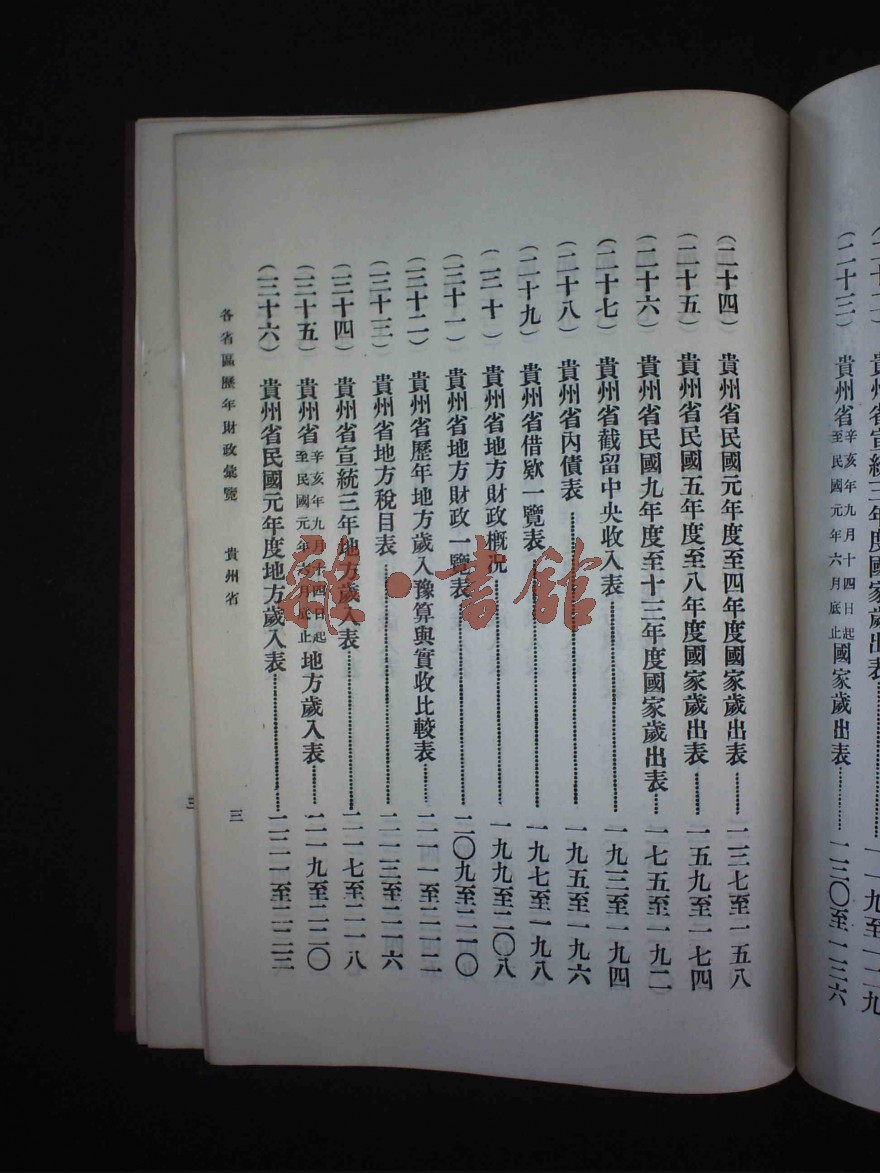 貴州省宣統三年度國家歲出表
(二十三) 貴州省辛亥年九月十四日起至民國元年六月底止國家歲出表…………一三〇至一三六
(二十四) 貴州省民國元年度至四年度國家歲出表…………一三七至一五八
(二十五) 貴州省民國五年度至八年度國家歲出表…………一五九至一七四
(二十六) 貴州省民國九年度至十三年度國家歲出表…………一七五至一九二
(二十七) 貴州省截留中央收入表…………一九三至一九四
(二十八) 貴州省內債表…………一九五至一九六
(二十九) 貴州省借欵一覽表…………一九七至一九八
(三十) 貴州省地方財政概況…………一九九至二〇八
(三十一) 貴州省地方財政一覽表…………二〇九至二一〇
(三十二) 貴州省歷年地方歲入豫算與實收比較表…………二一一至二一二
(三十三) 貴州省地方稅目表…………二一三至二一六
(三十四) 貴州省宣統三年地方歲入表…………二一七至二一八
(三十五) 貴州省辛亥年九月十四日起至民國元年六月底止地方歲入表…………二一九至二二〇
(三十六) 貴州省民國元年度地方歲入表…………二二一至二二三
各省區歷年財政彙覽 貴州省 三
三
雜·書館